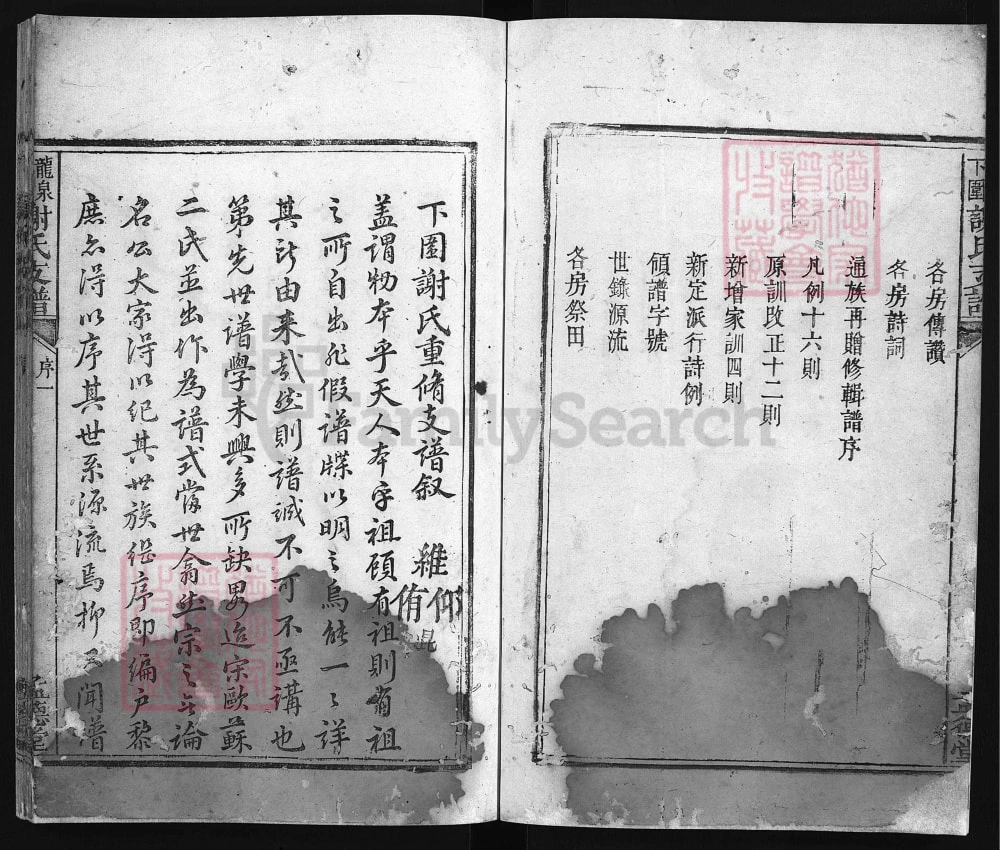 下圍謝氏支譜
各房傳讚
各房詩詞
通族再贈修輯譜序
凡例十六則
原訓改正十二則
新增家訓四則
新定派行詩例
領譜字號
世錄源流
各房祭田
下圍謝氏重脩支譜叙
維仰
侑
蓋謂物本乎天人本乎祖顧有祖則有祖
之所自出非假譜牒以明之烏能一々詳
其所由来哉然則譜誠不可不亟講也
第先世譜學未興多所缺畧迨宋歐蘇
二氏並出作為譜式當世翕然宗之無論
名公大家得以紀其世族縂序即編户黎
庶亦得以序其世系源流焉抑聞譜
龍泉謝氏支譜
序一
FamilySearch